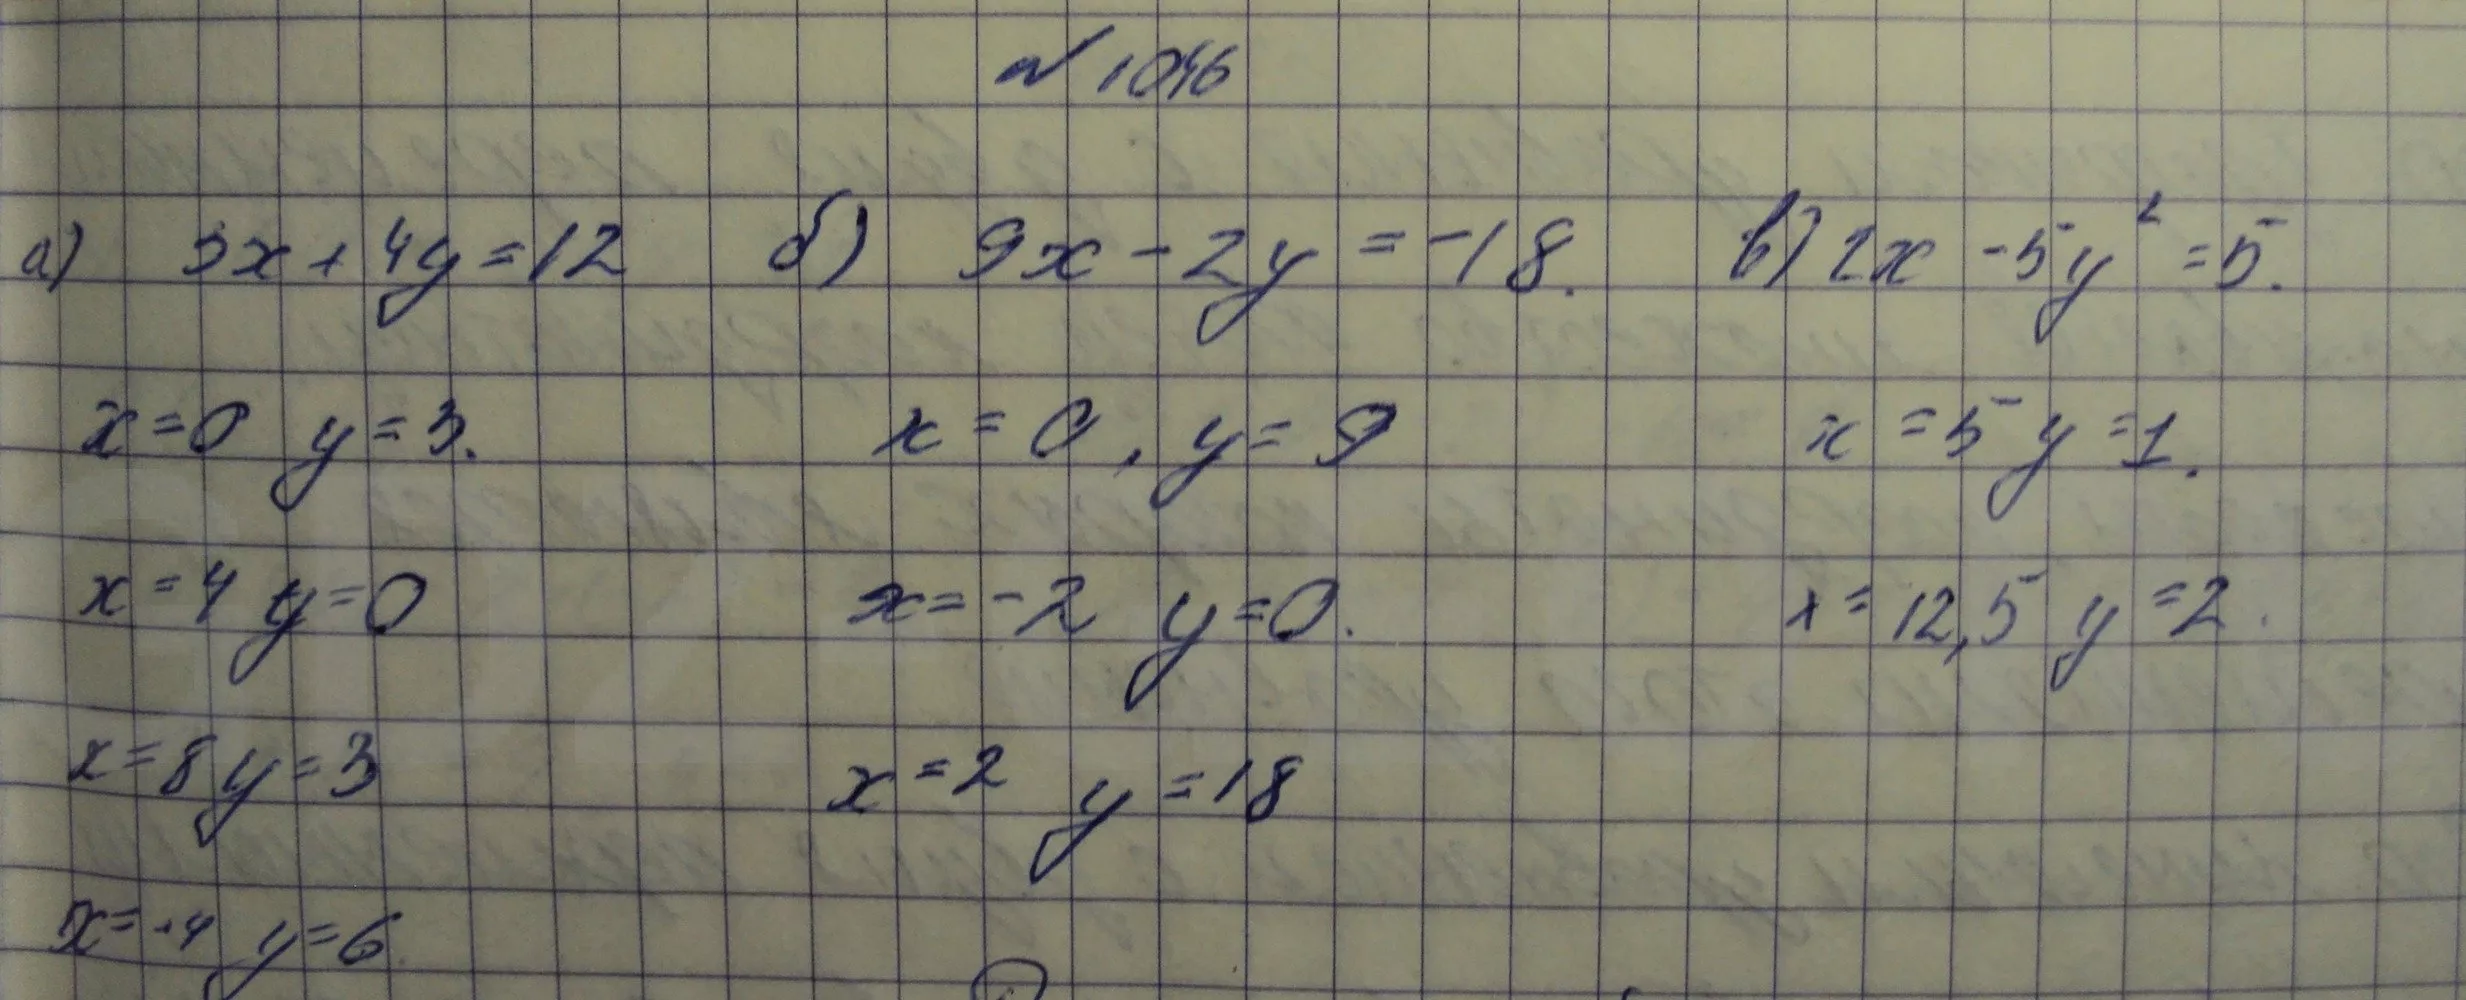 № 1046
а) 3x + 4y = 12 б) 9x - 2y = -18. в) 2x - 5y² = 5.
x = 0 y = 3. x = 0, y = 9 x = 5 y = 1.
x = 4 y = 0 x = -2 y = 0. x = 12,5 y = 2.
x = 8 y = 3 x = 2 y = 18
x = -4 y = 6.